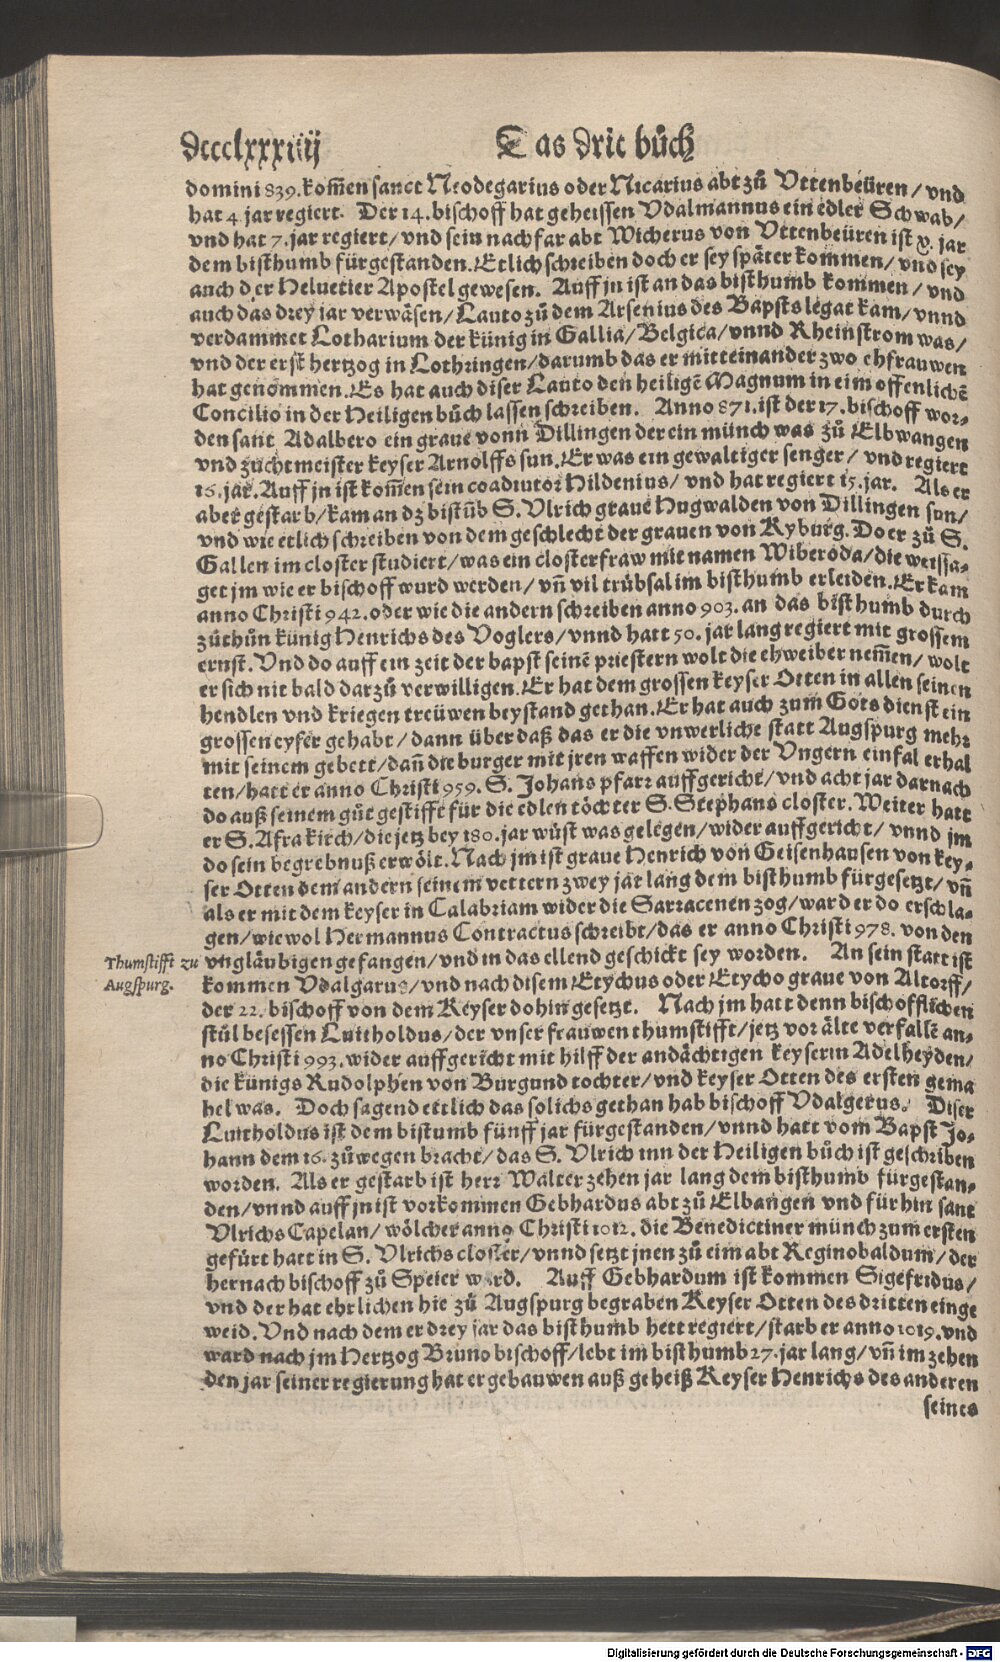 dcccclxxxiiij Das drit bůch
domini 839. kom̃en sanct Neodegarius oder Nicarius abt zů Vttenbeüren / vnd
hat 4 jar regiert. Der 14. bischoff hat geheissen Vdalmannus ein edler Schwab /
vnd hat 7. jar regiert / vnd sein nachfar abt Wicherus von Vttenbeüren ist x. jar
dem bisthumb fürgestanden. Etlich schreiben doch er sey später kommen / vnd sey
auch der Heluetier Apostel gewesen. Auff jn ist an das bisthumb kommen / vnd
auch das drey jar verwäsen / Lauto zů dem Arsenius des Bapsts legat kam / vnnd
verdammet Lotharium der künig in Gallia / Belgica / vnnd Rheinstrom was /
vnd der erst hertzog in Lothringen / darumb das er mitteinander zwo ehfrauwen
hat genommen. Es hat auch diser Lauto den heiligẽ Magnum in eim offenlichẽ
Concilio in der Heiligen bůch lassen schreiben. Anno 871. ist der 17. bischoff wor⸗
den sant Adalbero ein graue vonn Dillingen der ein münch was zů Elbwangen
vnd zuchtmeister keyser Arnolffs sun. Er was ein gewaltiger senger / vnd regiert
16. jar. Auff jn ist kom̃en sein coadiutor Hildenius / vnd hat regiert 15. jar. Als er
aber gestarb / kam an dz bistũb S. Vlrich graue Hugwalden von Dillingen sun /
vnd wie etlich schreiben von dem geschlecht der grauen von Kyburg. Do er zů S.
Gallen im closter studiert / was ein closterfraw mit namen Wiberoda / die weissa⸗
get jm wie er bischoff wurd werden / vñ vil trübsal im bisthumb erleiden. Er kam
anno Christi 942. oder wie die andern schreiben anno 903. an das bisthumb durch
zůthůn künig Henrichs des Voglers / vnnd hatt 50. jar lang regiert mit grossem
ernst. Vnd do auff ein zeit der bapst seinẽ priestern wolt die ehweiber nem̃en / wolt
er sich nit bald darzů verwilligen. Er hat dem grossen keyser Otten in allen seinen
hendlen vnd kriegen treüwen beystand gethan. Er hat auch zum Gots dienst ein
grossen eyfer gehabt / dann über daß das er die vnwerliche statt Augspurg mehr
mit seinem gebett / dañ die burger mit jren waffen wider der Vngern einfal erhal
ten / hatt er anno Christi 959. S. Johans pfarr auffgericht / vnd acht jar darnach
do auß seinem gůt gestifft für die edlen töchter S. Stephans closter. Weiter hatt
er S. Afra kirch / die jetz bey 180. jar wůst was gelegen / wider auffgericht / vnnd jm
do sein begrebnuß erwölt. Nach jm ist graue Henrich von Geisenhausen von key⸗
ser Otten dem andern seinem vettern zwey jar lang dem bisthumb fürgesetzt / vñ
als er mit dem keyser in Calabriam wider die Sarracenen zog / ward er do erschla⸗
gen / wiewol Hermannus Contractus schreibt / das er anno Christi 978. von den
Thumstifft zu vngläubigen gefangen / vnd in das ellend geschickt sey worden. An sein statt ist
Augspurg. kommen Vdalgarus / vnd nach disem Etychus oder Etycho graue von Altorff /
der 22. bischoff von dem Keyser dohin gesetzt. Nach jm hatt denn bischofflichen
stůl besessen Luitholdus / der vnser frauwen thumstifft / jetz vor älte verfallẽ an⸗
no Christi 993. wider auffgericht mit hilff der andächtigen keyserin Adelheyden /
die künigs Rudolphen von Burgund tochter / vnd keyser Otten des ersten gema
hel was. Doch sagend ettlich das solichs gethan hab bischoff Vdalgerus. Diser
Luitholdus ist dem bistumb fünff jar fürgestanden / vnnd hatt vom Bapst Jo⸗
hann dem 16. zůwegen bracht / das S. Vlrich inn der Heiligen bůch ist geschriben
worden. Als er gestarb ist herr Walter zehen jar lang dem bisthumb fürgestan⸗
den / vnnd auff jn ist vorkommen Gebhardus abt zů Elbangen vnd fürhin sant
Vlrichs Capelan / wölcher anno Christi 1012. die Benedictiner münch zum ersten
gefürt hatt in S. Vlrichs closter / vnnd setzt jnen zů eim abt Reginobaldum / der
hernach bischoff zů Speier ward. Auff Gebhardum ist kommen Sigefridus /
vnd der hat ehrlichen hie zů Augspurg begraben Keyser Otten des dritten einge
weid. Vnd nach dem er drey jar das bisthumb hett regiert / starb er anno 1019. vnd
ward nach jm Hertzog Bruno bischoff / lebt im bisthumb 27. jar lang / vñ im zehen
den jar seiner regierung hat er gebauwen auß geheiß Keyser Henrichs des anderen
seines
Digitalisierung gefördert durch die Deutsche Forschungsgemeinschaft - DFG